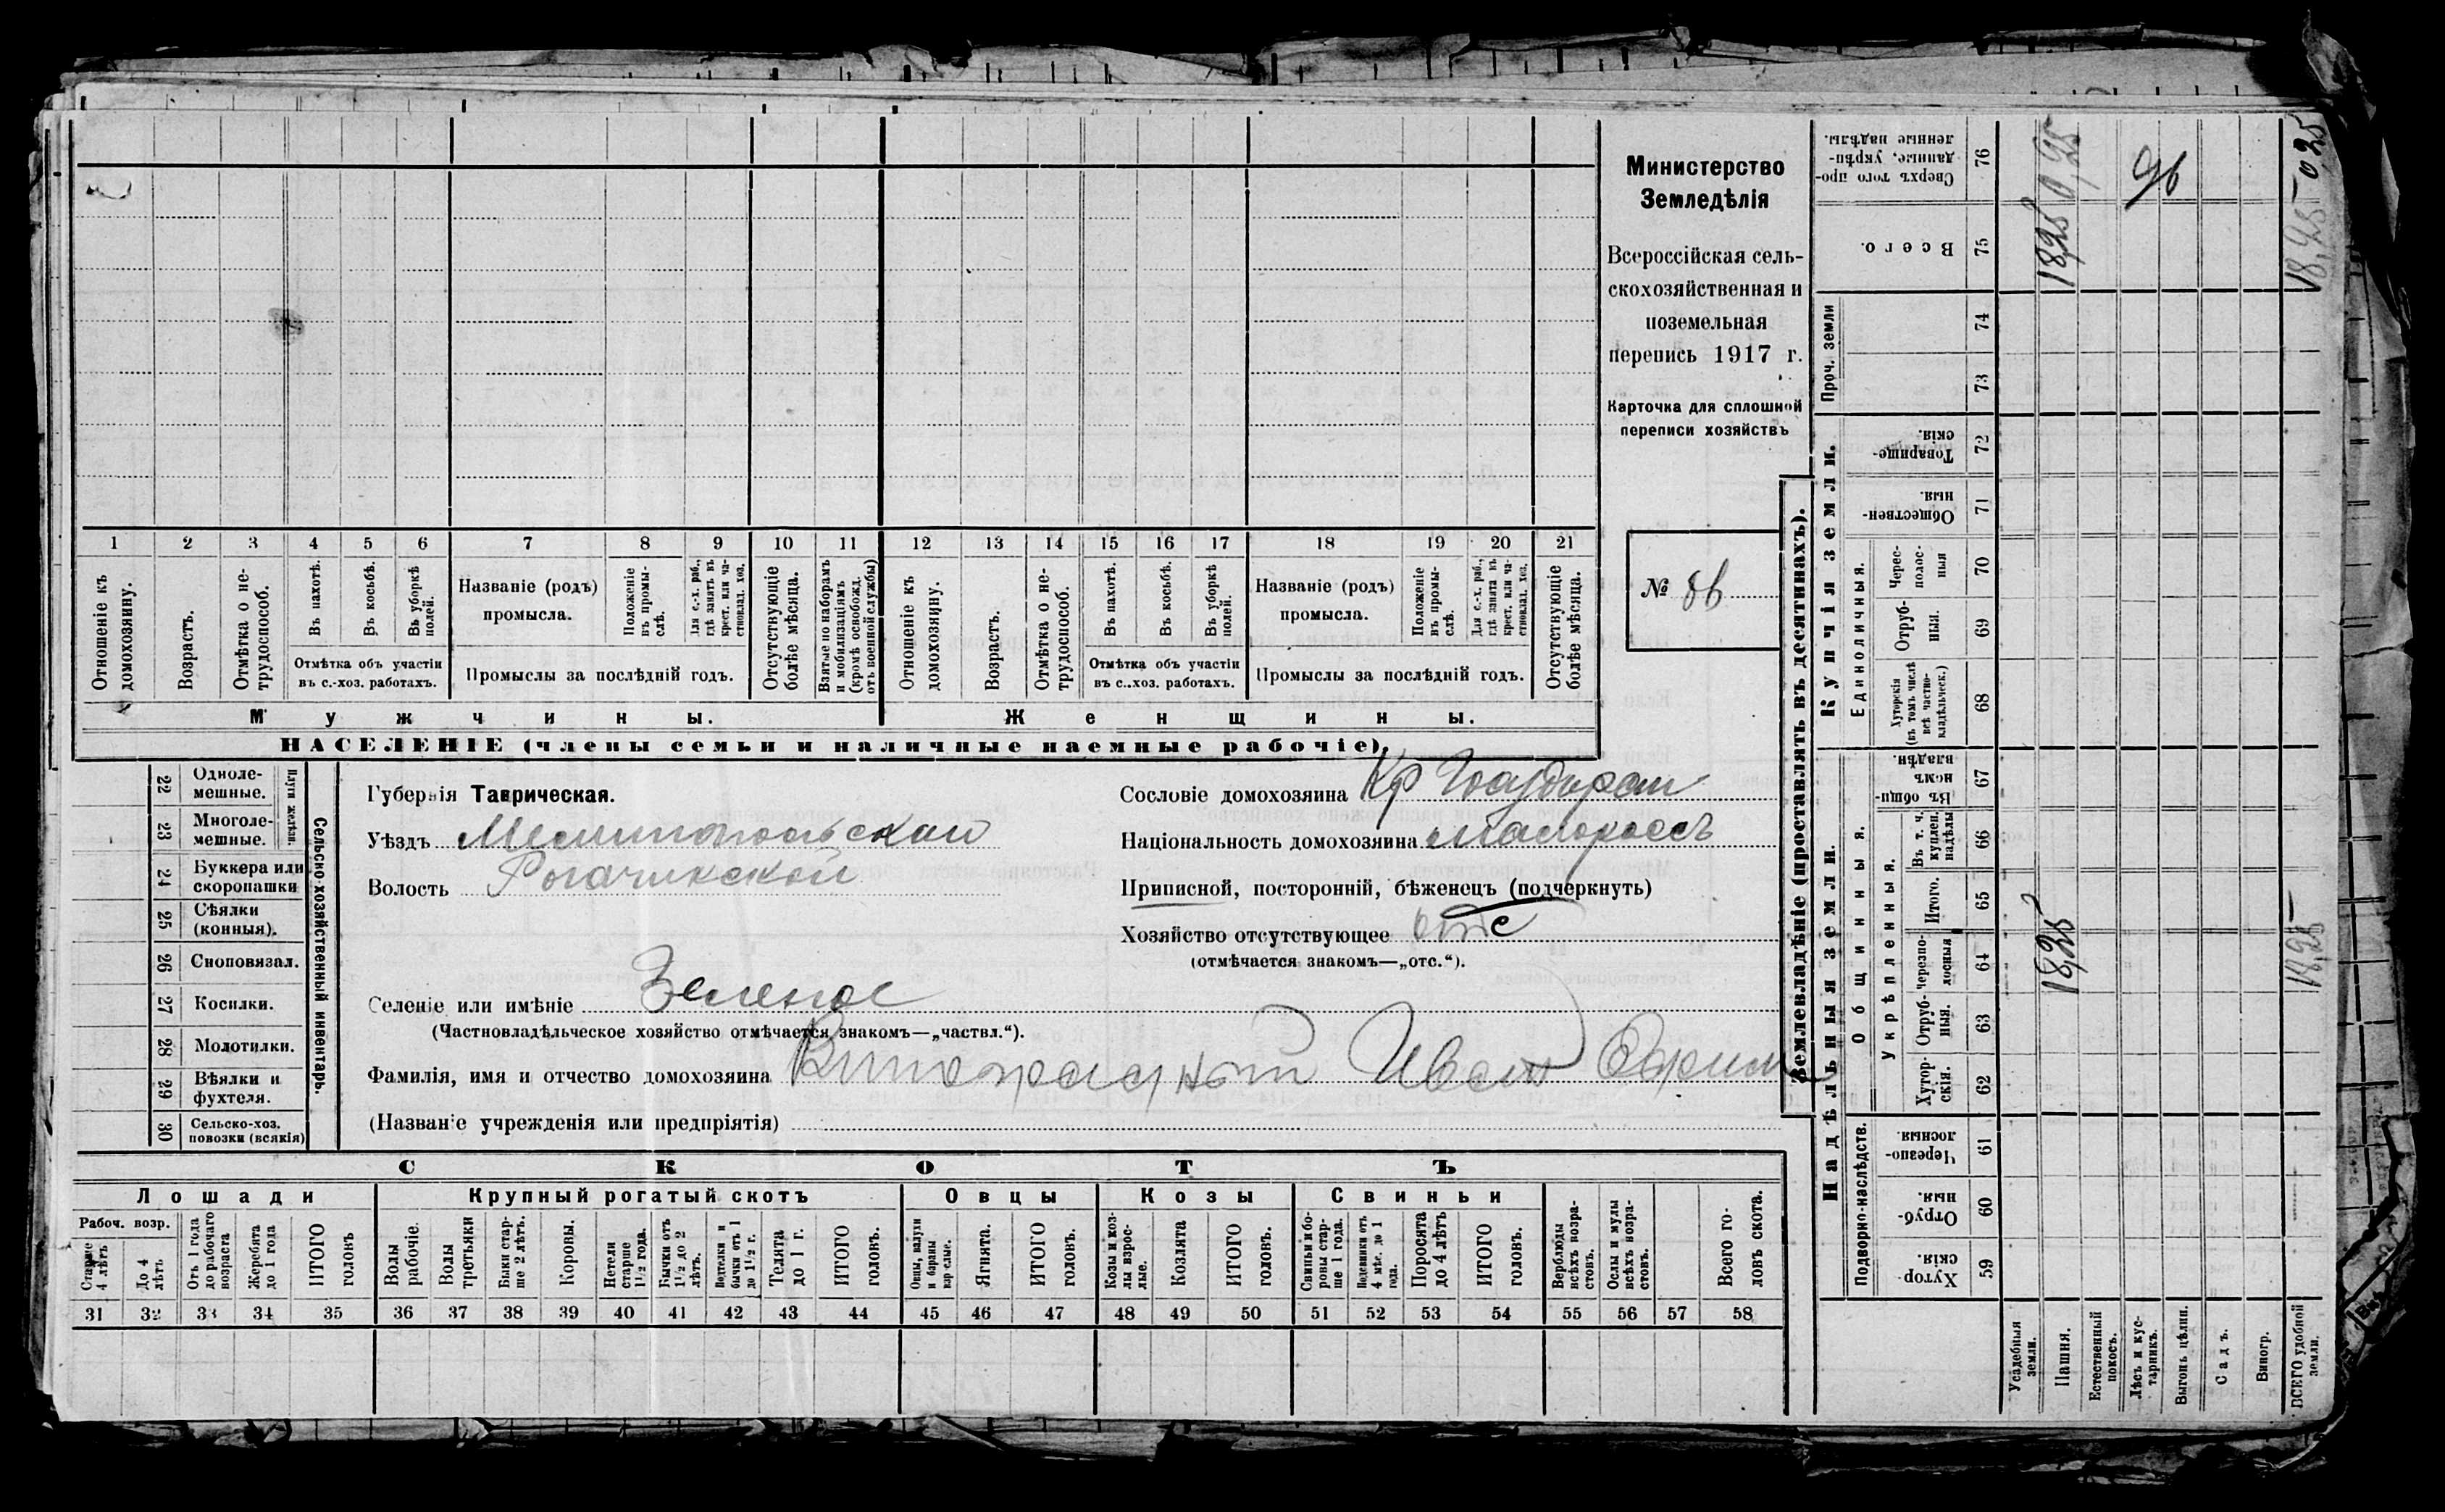 1 2 3 4 5 6 7 8 9 10 11 12 13 14 15 16 17 18 19 20 21
Отношеніе къ домохозяину.
Возрастъ.
Отмѣтка о не-
трудоспособ.
Въ пахотѣ.
Въ косьбѣ.
Въ уборкѣ
полей.
Отмѣтка объ участіи
въ с.-хоз. работахъ.
Названіе (родъ)
промысла.
Положеніе
въ промы-
слѣ.
Для с.-х. раб.,
гдѣ занятъ въ
крест. или ча-
стновлад. хоз.
Промыслы за послѣдній годъ.
Отсутствующіе
болѣе мѣсяца.
Взятые по наборамъ
и мобилизаціямъ
(кромѣ освобожд.
отъ военной службы)
Отношеніе къ
домохозяину.
Возрастъ.
Отмѣтка о не-
трудоспособ.
Въ пахотѣ.
Въ косьбѣ.
Въ уборкѣ
полей.
Отмѣтка объ участіи
въ с.-хоз. работахъ.
Названіе (родъ)
промысла.
Положеніе
въ промы-
слѣ.
Для с.-х. раб.,
гдѣ занята въ
крест. или ча-
стновлад. хоз.
Промыслы за послѣдній годъ.
Отсутствующіе
болѣе мѣсяца.
Мужчины. Женщины.
НАСЕЛЕНІЕ (члены семьи и наличные наемные рабочіе).
Министерство
Земледѣлія
Всероссійская сель-
скохозяйственная и
поземельная
перепись 1917 г.
Карточка для сплошной
переписи хозяйствъ
№
22 Одноле-
мешные.
23 Многоле-
мешные.
Плуги желѣзн.
24 Буккера или
скоропашки
25 Сѣялки
(конныя).
26 Сноповязал.
27 Косилки.
28 Молотилки.
29 Вѣялки и
фухтеля.
30 Сельско-хоз.
повозки (всякія)
Сельско-хозяйственный инвентарь.
Губернія Таврическая.
Уѣздъ Мелитопольскій
Волость Рогачикской
Селеніе или имѣніе Зеленое
(Частновладѣльческое хозяйство отмѣчается знакомъ—„частвл.“).
Фамилія, имя и отчество домохозяина Виноградный Иван Ефим
(Названіе учрежденія или предпріятія)
Сословіе домохозяина Кр
Національность домохозяина малороссъ
Приписной, посторонній, бѣженецъ (подчеркнуть)
Хозяйство отсутствующее отс
(отмѣчается знакомъ—„отс.“).
СКОТЪ
Лошади Крупный рогатый скотъ Овцы Козы Свиньи
Рабоч. возр.
Старше
4 лѣтъ
До 4
лѣтъ
Отъ 1 года
до рабочаго
возраста
Жеребята
до 1 года
ИТОГО
головъ
Волы
рабочіе.
Волы
третьяки
Быки стар-
ше 2 лѣтъ.
Коровы.
Нетели
старше
1½ года.
Бычки отъ
1½ до 2
лѣтъ.
Подтелки и
бычки отъ 1
до 1½ г.
Телята
до 1 г.
ИТОГО
головъ.
Овцы, валухи
и бараны
взрослые.
Ягнята.
ИТОГО
головъ.
Козы и коз-
лы взрос-
лые.
Козлята
ИТОГО
головъ.
Свиньи и бо-
ровы стар-
ше 1 года.
Подсвинки отъ
4 мѣс. до 1
года.
Поросята
до 4 лѣтъ
ИТОГО
головъ.
Верблюды
всѣхъ возра-
стовъ.
Ослы и мулы
всѣхъ возра-
стовъ.
Всего го-
ловъ скота.
31 32 33 34 35 36 37 38 39 40 41 42 43 44 45 46 47 48 49 50 51 52 53 54 55 56 57 58
Землевладѣніе (проставлять въ десятинахъ).
Надѣльныя земли. Купчія земли. Проч. земли
Подворно-наслѣдств.
Общинныя.
Укрѣпленныя.
Единоличныя.
Хутор-
скія. 59
Отруб-
ныя. 60
Черезпо-
лосныя. 61
Хутор-
скія. 62
Отруб-
ныя. 63
черезпо-
лосныя 64
Итого. 65
Въ т. ч.
куплен.
надѣлы 66
Въ общи-
номъ
владѣн. 67
Хуторскія
(въ томъ числѣ
всѣ частно-
владѣльческ.) 68
Отруб-
ныя. 69
Черес-
полос-
ныя 70
Обществен-
ныя. 71
Товарище-
скія. 72
73
74
Всего. 75
Сверхъ того про-
данные, укрѣп-
ленные надѣлы. 76
Усадебныя
земли.
Пашня. 18,25 18,25 0,25
Естественный
покосъ.
Лѣсъ и кус-
тарникъ.
Выгонъ цѣлин.
Садъ.
Виногр.
ВСЕГО удобной
земли. 18,25 18,25 0,25